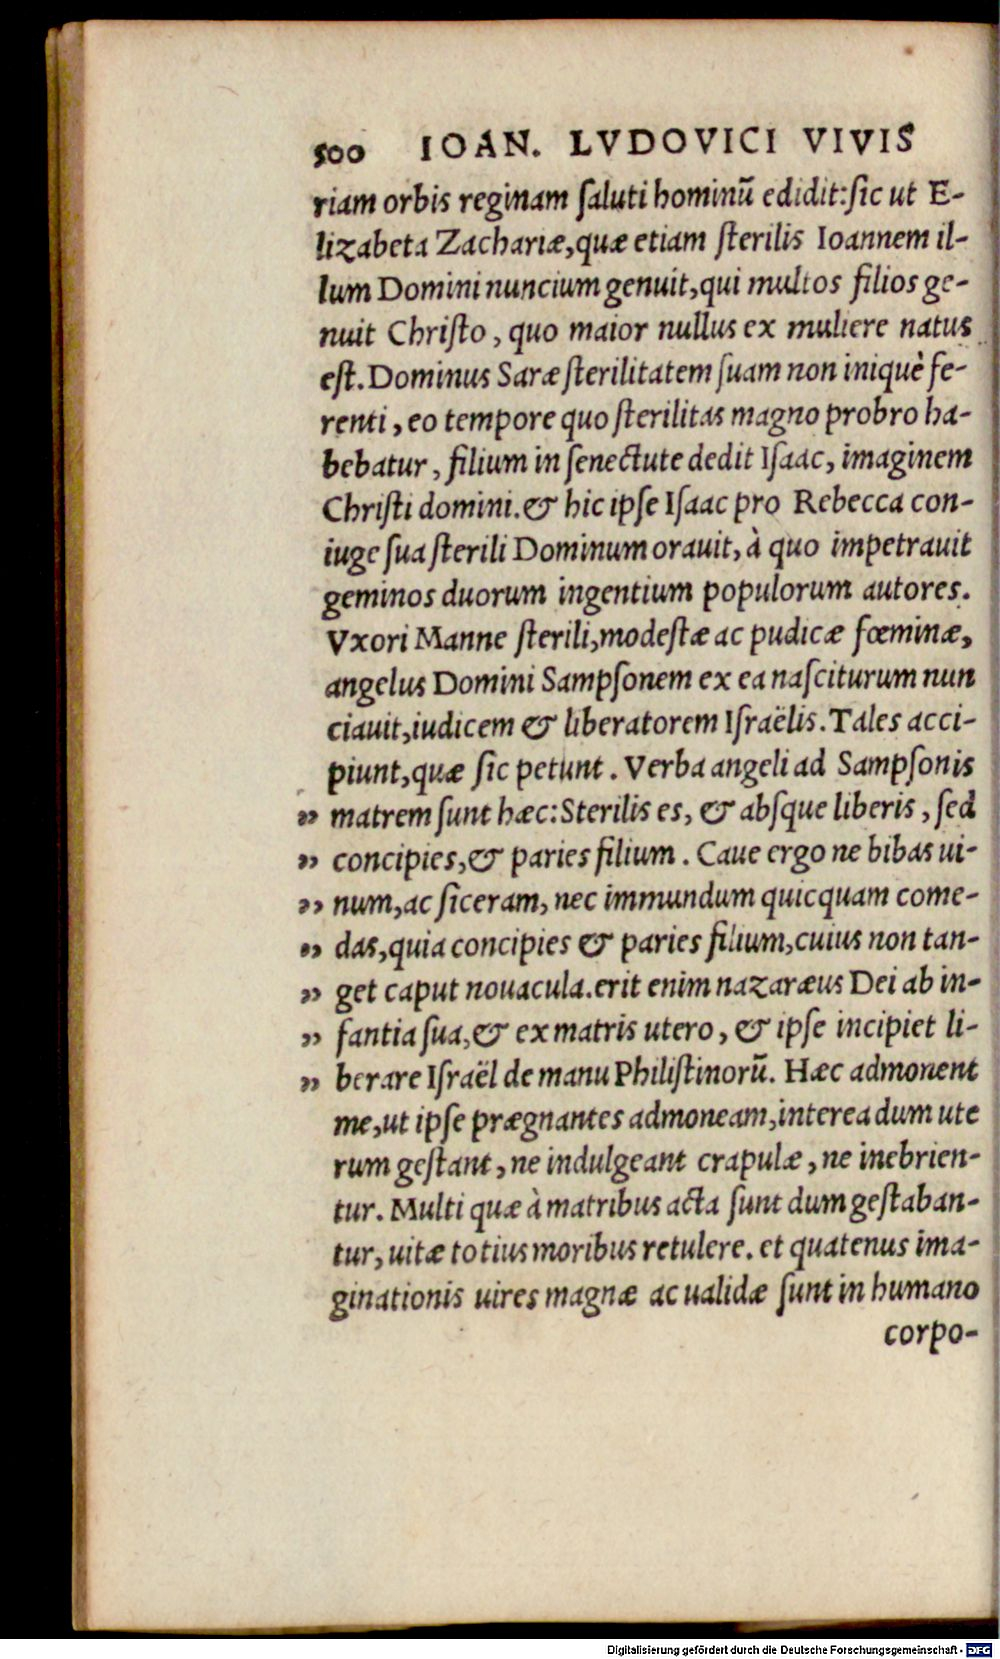 500 IOAN. LVDOVICI VIVIS
riam orbis reginam ſaluti hominū edidit:ſic ut E-
lizabeta Zachariæ,quæ etiam ſterilis Ioannem il-
lum Domini nuncium genuit,qui multos filios ge-
nuit Chriſto, quo maior nullus ex muliere natus
eſt. Dominus Saræ ſterilitatem ſuam non iniquè fe-
renti, eo tempore quo ſterilitas magno probro ha-
bebatur, filium in ſenectute dedit Iſaac, imaginem
Chriſti domini. & hic ipſe Iſaac pro Rebecca con-
iuge ſua ſterili Dominum orauit, à quo impetrauit
geminos duorum ingentium populorum autores.
Vxori Manne ſterili,modeſtæ ac pudicæ fœminæ,
angelus Domini Sampſonem ex ea naſciturum nun
ciauit,iudicem & liberatorem Iſraëlis. Tales acci-
piunt,quæ ſic petunt. Verba angeli ad Sampſonis
” matrem ſunt hæc: Sterilis es, & abſque liberis, ſed
” concipies,& paries filium. Caue ergo ne bibas ui-
” num,ac ſiceram, nec immundum quicquam come-
” das,quia concipies & paries filium,cuius non tan-
” get caput nouacula.erit enim nazaræus Dei ab in-
” fantia ſua,& ex matris utero, & ipſe incipiet li-
” berare Iſraël de manu Philiſtinorū. Hæc admonent
me,ut ipſe prægnantes admoneam,interea dum ute
rum geſtant, ne indulgeant crapulæ, ne inebrien-
tur. Multi quæ à matribus acta ſunt dum geſtaban-
tur, uitæ totius moribus retulere. et quatenus ima-
ginationis uires magnæ ac ualidæ ſunt in humano
corpo-
Digitalisierung gefördert durch die Deutsche Forschungsgemeinschaft - DFG